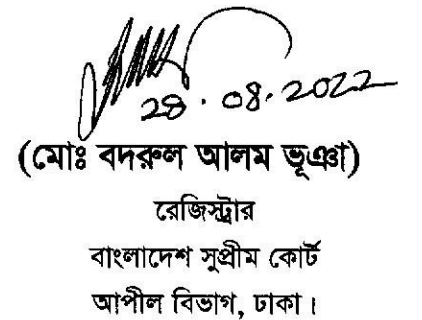 28.08.2022
(মোঃ বদরুল আলম ভূঞা)
রেজিস্ট্রার
বাংলাদেশ সুপ্রীম কোর্ট
আপীল বিভাগ, ঢাকা।